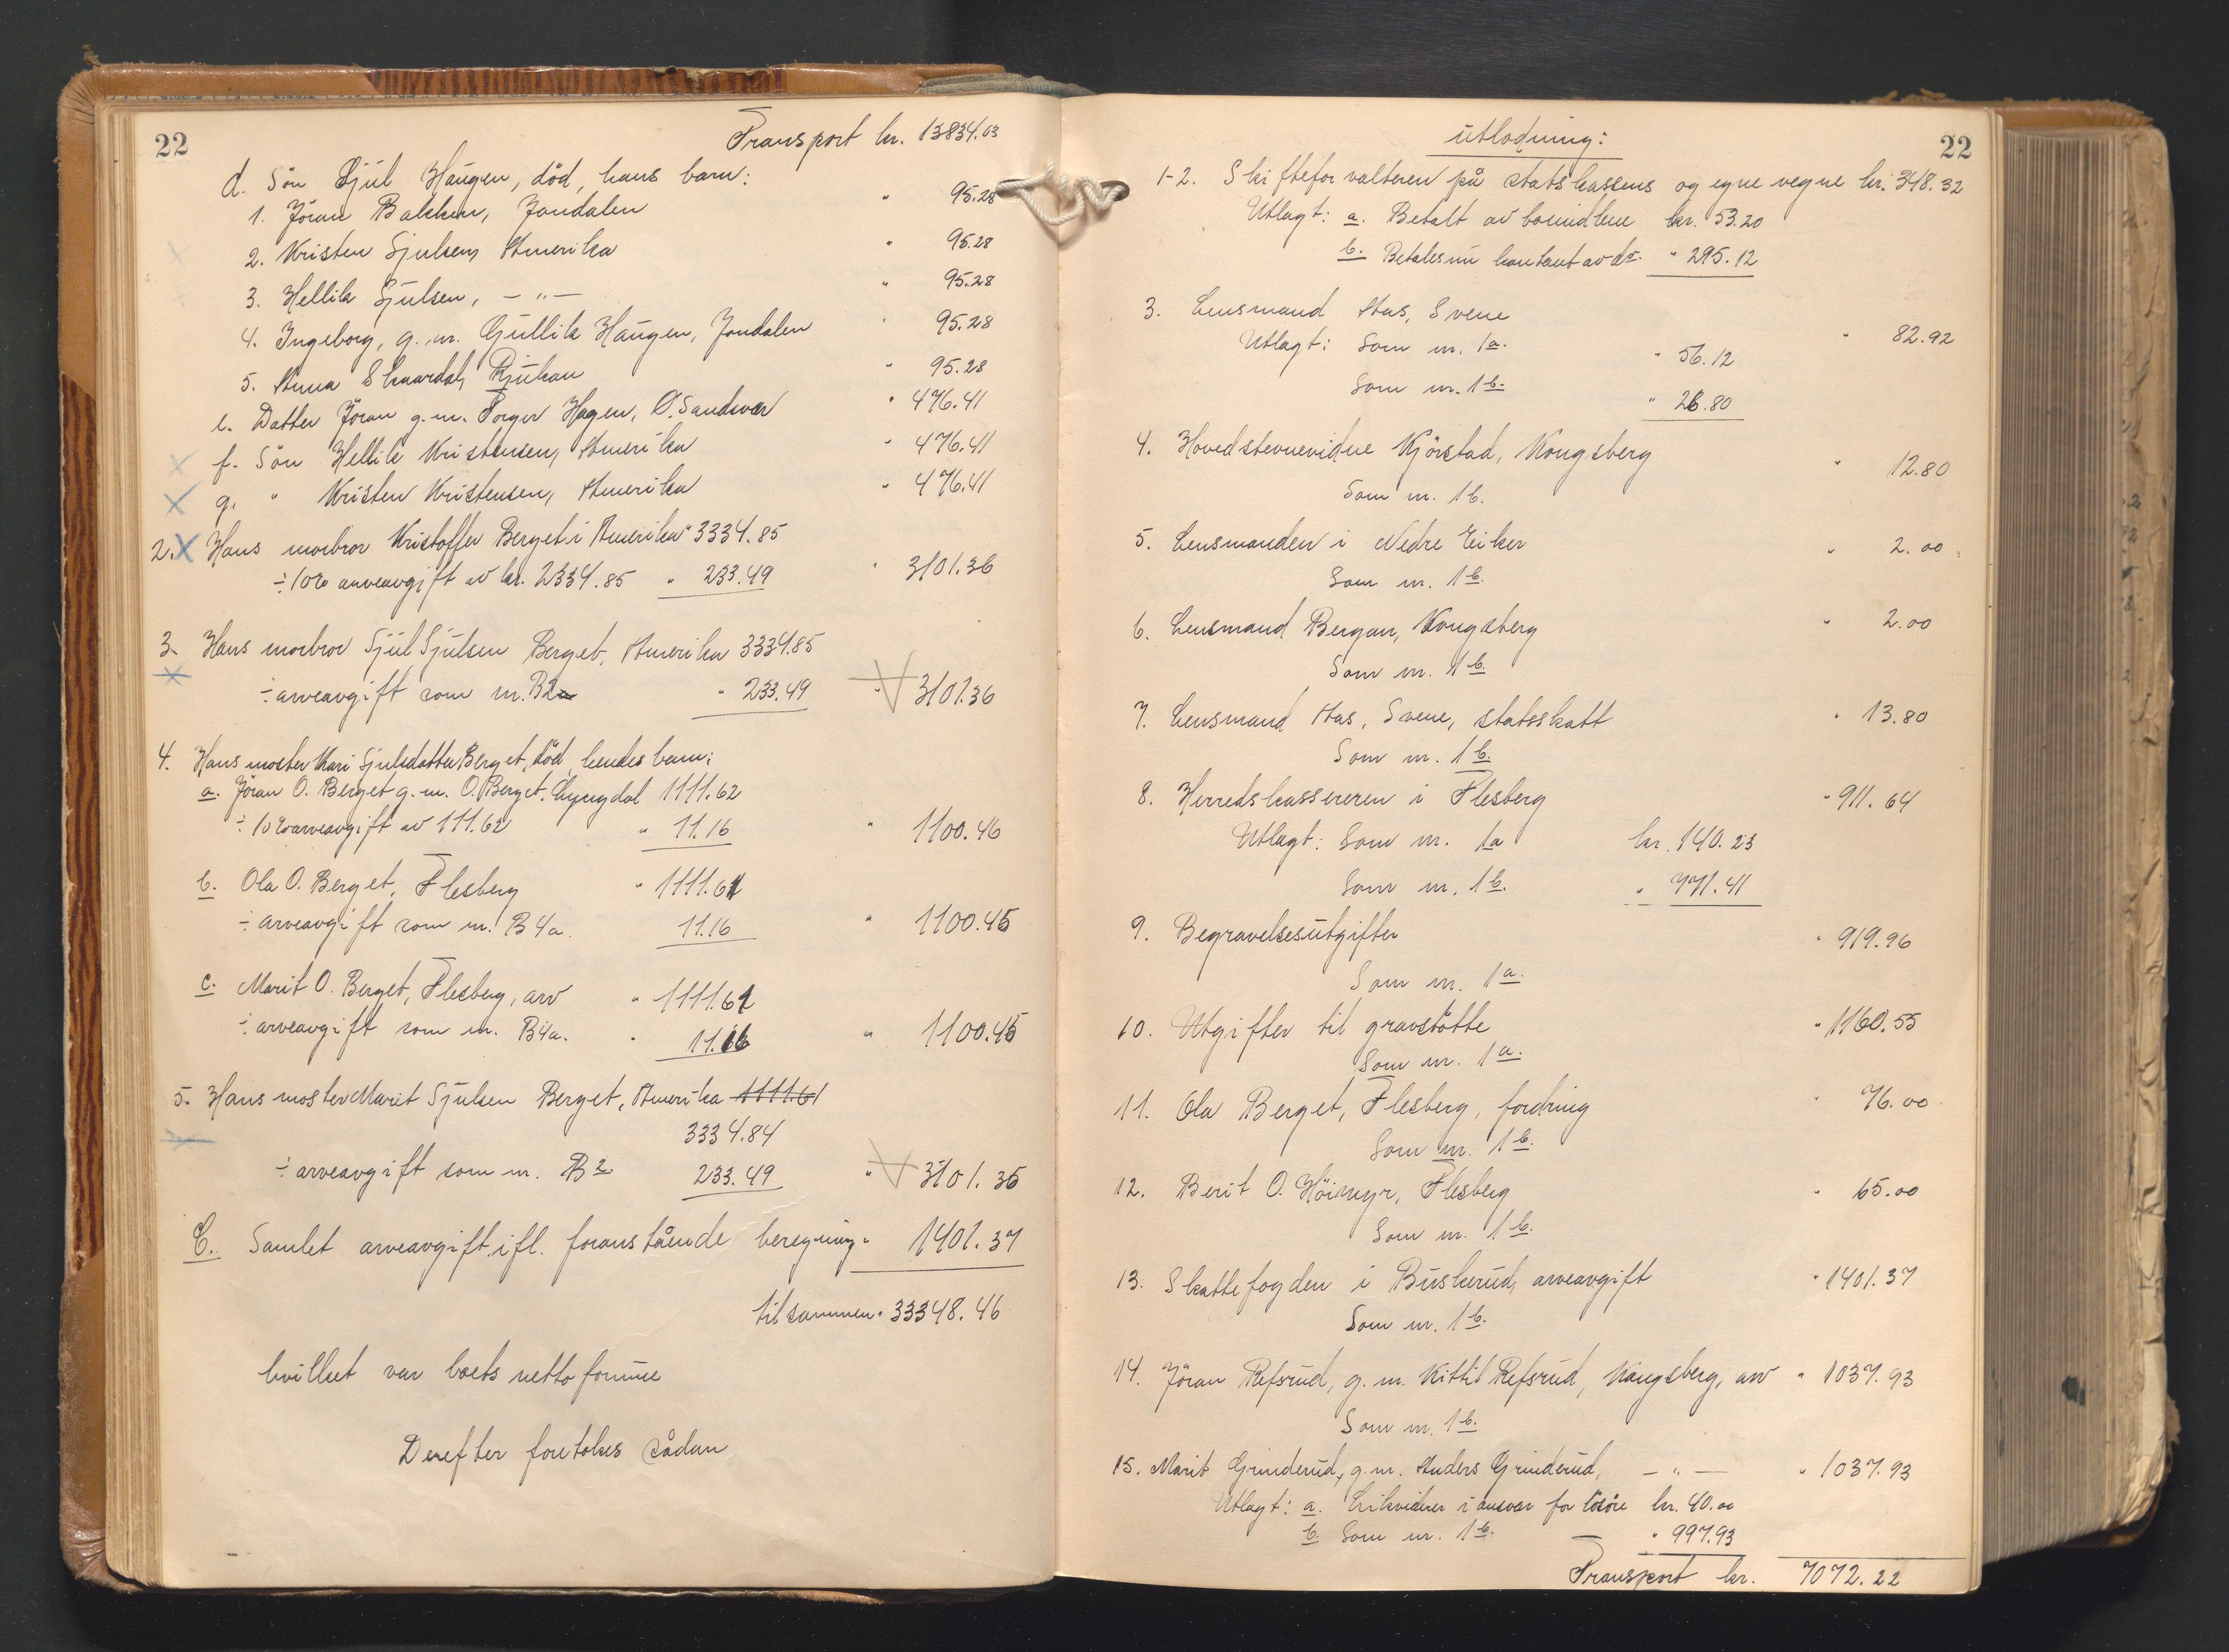 22
Transport kr. 13834.63
d. Sön Sjul Haugen, död, hans barn:
1. Jöran Bakken, Jondalen " 95.28
2. Kristen Sjulsen, Amerika " 95.28
3. Hellik Sjulsen, — " — " 95.28
4. Ingeborg, g. m. Gullik Haugen, Jondalen " 95.28
5. Anna Skaardal, Rjukan " 95.28
e. Datter Jöran g. m. Torger Hagen, Ö. Sandsver " 476.41
f. Sön Hellik Kristensen, Amerika " 476.41
g. " Kristen Kristensen, Amerika " 476.41
2. X Hans morbror Kristoffer Berget i Amerika " 3334.85
÷ 10% arveavgift av kr. 2334.85 " 233.49 " 3101.36
3. Hans morbror Sjul Sjulsen Berget, Amerika 3334.85
÷ arveavgift som nr. B2 " 233.49 " 3101.36
4. Hans moster Kari Sjulsdatter Berget, död, hendes barn:
a. Jöran O. Berget g. m. O. Berget, Lyngdal 1111.62
÷ 10% arveavgift av 111.62 " 11.16 " 1100.46
b. Ola O. Berget, Flesberg " 1111.61
÷ arveavgift som nr. B 4a. 11.16 " 1100.45
c. Marit O. Berget, Flesberg, arv " 1111.61
÷ arveavgift som nr. B4a. " 11.16 " 1100.45
5. Hans moster Marit Sjulsen Berget, Amerika 1111.61
3334.84
÷ arveavgift som nr. B 2 233.49 " 3101.35
C. Samlet arveavgift ifl. foranstående beregning " 1401.37
tilsammen " 33348.46
hvilket var boets netto formue
Derefter foretokes sådan
22
utlodning:
1-2. Skifteforvalteren på statskassens og egne vegne kr. 348.32
Utlagt: a. Betalt av boemidlene kr. 53.20
b. Betales nu kontant av do. " 295.12
3. Lensmand Aas, Svene " 82.92
Utlagt: Som nr. 1a. " 56.12
Som nr. 1b. " 26.80
4. Hovedstevnevidne Kjörstad, Kongsberg " 12.80
Som nr. 1b.
5. Lensmanden i Nedre Eiker " 2.00
Som nr. 1b.
6. Lensmand Bergan, Kongsberg " 2.00
Som nr. 1b.
7. Lensmand Aas, Svene, statsskatt " 13.80
Som nr. 1b.
8. Herredskassereren i Flesberg " 911.64
Utlagt: Som nr. 1a kr. 140.23
Som nr. 1b. " 771.41
9. Begravelsesutgifter " 919.96
Som nr. 1a.
10. Utgifter til gravstötte " 1160.55
Som nr. 1a.
11. Ola Berget, Flesberg, fordring " 76.00
Som nr. 1b.
12. Berit O. Höimyr, Flesberg " 65.00
Som nr. 1b.
13. Skattefogden i Buskerud, arveavgift " 1401.37
Som nr. 1b.
14. Jöran Refsrud, g. m. Kittil Refsrud, Kongsberg, arv " 1037.93
Som nr. 1b.
15. Marit Grinderud, g. m. Anders Grinderud, — " — " 1037.93
Utlagt: a. Likviderer i ansvar for lösöre kr. 40.00
b. Som nr. 1b. " 997.93
Transport kr. 7072.22